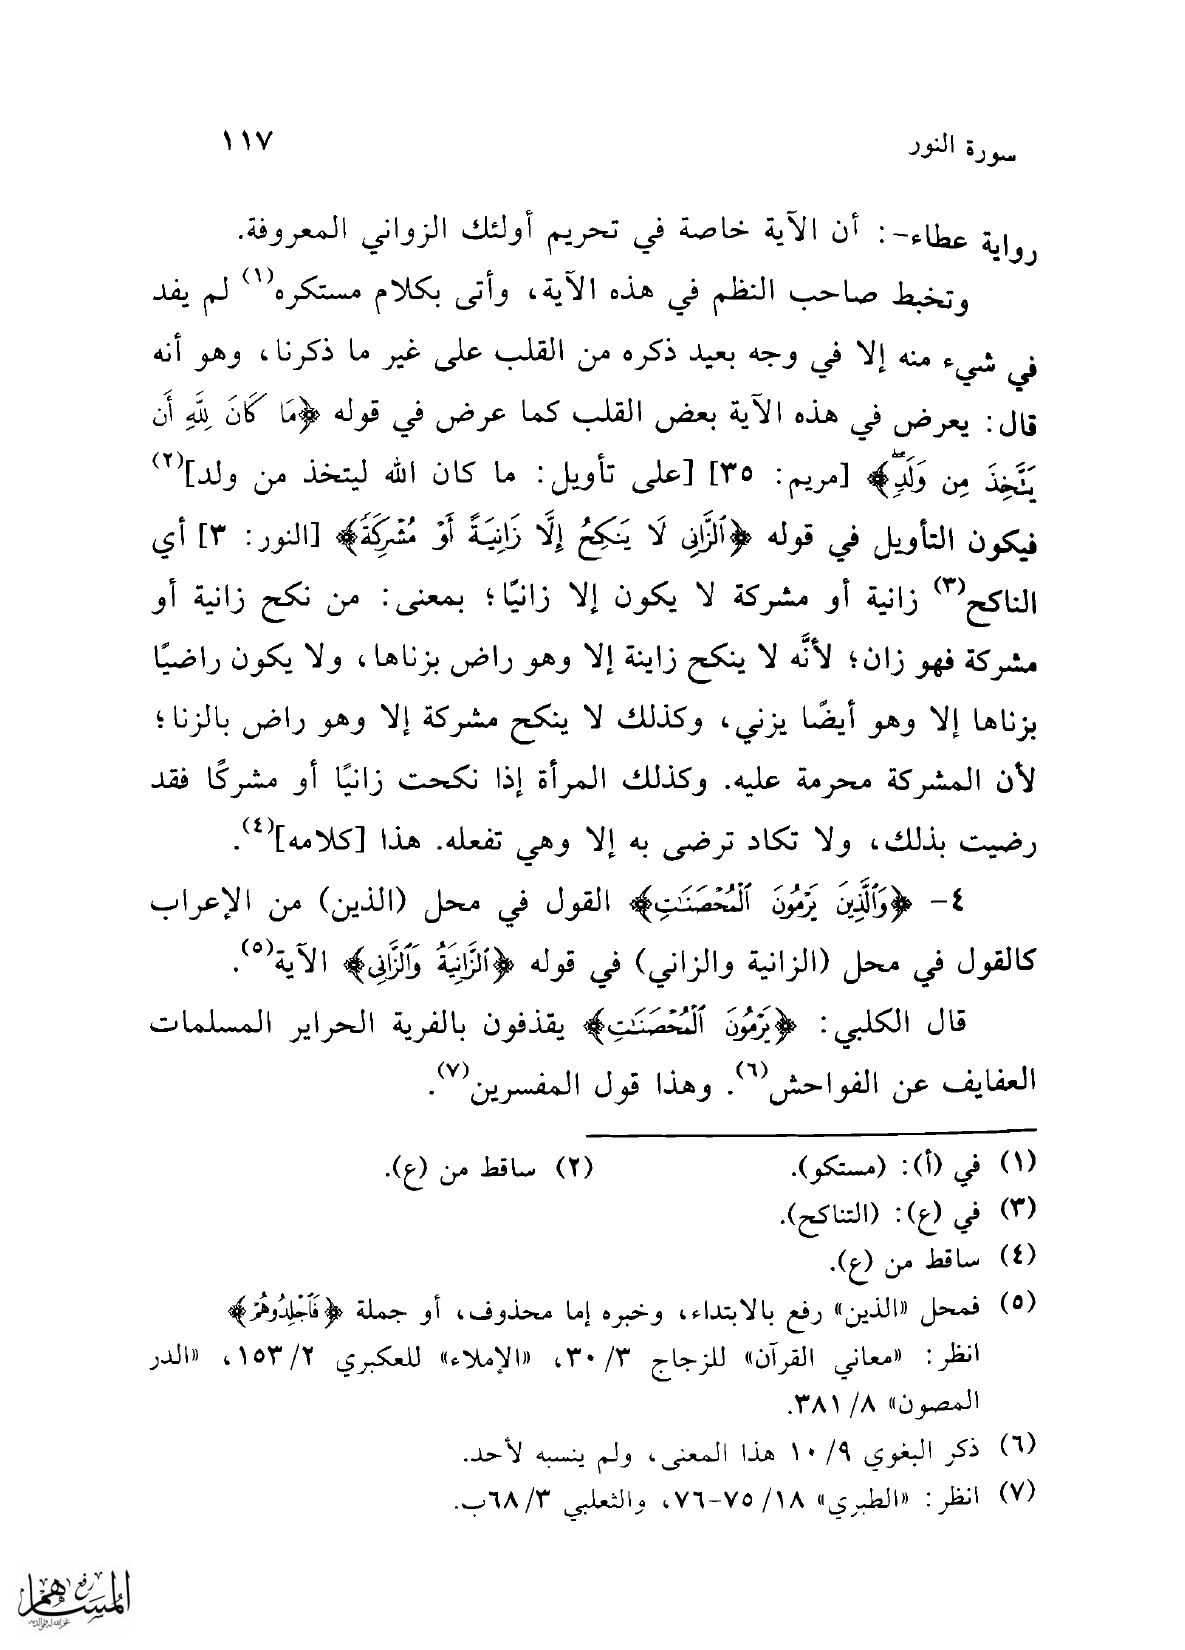 سورة النور
١١٧
رواية عطاء-: أن الآية خاصة في تحريم أولئك الزواني المعروفة.
وتخبط صاحب النظم في هذه الآية، وأتى بكلام مستكره(١) لم يفد
في شيء منه إلا في وجه بعيد ذكره من القلب على غير ما ذكرنا، وهو أنه
قال: يعرض في هذه الآية بعض القلب كما عرض في قوله ﴿مَا كَانَ لِلَّهِ أَن
يَتَّخِذَ مِن وَلَدٍۖ﴾ [مريم: ٣٥] [على تأويل: ما كان الله ليتخذ من ولد](٢)
فيكون التأويل في قوله ﴿ٱلزَّانِى لَا يَنكِحُ إِلَّا زَانِيَةً أَوْ مُشْرِكَةً﴾ [النور: ٣] أي
الناكح(٣) زانية أو مشركة لا يكون إلا زانيًا؛ بمعنى: من نكح زانية أو
مشركة فهو زان؛ لأنَّه لا ينكح زاينة إلا وهو راض بزناها، ولا يكون راضيًا
بزناها إلا وهو أيضًا يزني، وكذلك لا ينكح مشركة إلا وهو راض بالزنا؛
لأن المشركة محرمة عليه. وكذلك المرأة إذا نكحت زانيًا أو مشركًا فقد
رضيت بذلك، ولا تكاد ترضى به إلا وهي تفعله. هذا [كلامه](٤).
٤- ﴿وَٱلَّذِينَ يَرْمُونَ ٱلْمُحْصَنَٰتِ﴾ القول في محل (الذين) من الإعراب
كالقول في محل (الزانية والزاني) في قوله ﴿ٱلزَّانِيَةُ وَٱلزَّانِى﴾ الآية(٥).
قال الكلبي: ﴿يَرْمُونَ ٱلْمُحْصَنَٰتِ﴾ يقذفون بالفرية الحراير المسلمات
العفايف عن الفواحش(٦). وهذا قول المفسرين(٧).
(١) في (أ): (مستكو). (٢) ساقط من (ع).
(٣) في (ع): (التناكح).
(٤) ساقط من (ع).
(٥) فمحل «الذين» رفع بالابتداء، وخبره إما محذوف، أو جملة ﴿فَٱجْلِدُوهُمْ﴾
انظر: «معاني القرآن» للزجاج ٣/ ٣٠، «الإملاء» للعكبري ٢/ ١٥٣، «الدر
المصون» ٨/ ٣٨١.
(٦) ذكر البغوي ٩/ ١٠ هذا المعنى، ولم ينسبه لأحد.
(٧) انظر: «الطبري» ١٨/ ٧٥-٧٦، والثعلبي ٣/ ٦٨ب.